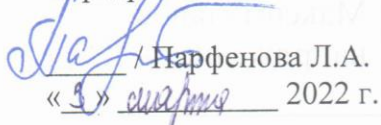 / Парфенова Л.А.
«3» марта 2022 г.